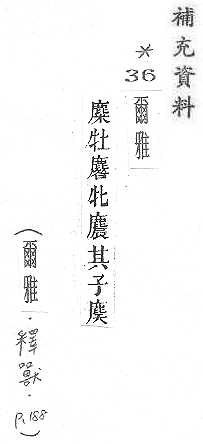 補充資料
*36 爾雅
麋牡麔牝麎其子䴠
(爾雅·釋獸·P.188)